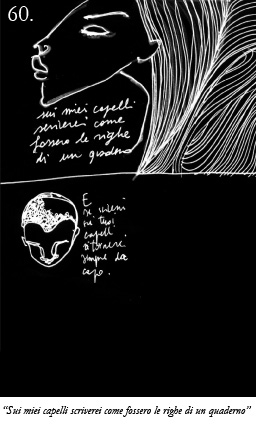 60.
sui miei capelli
scriverei come
fossero le righe
di un quaderno
E
se scrivessi
sui tuoi
capelli
ritornerei
sempre da
capo.
"Sui miei capelli scriverei come fossero le righe di un quaderno"